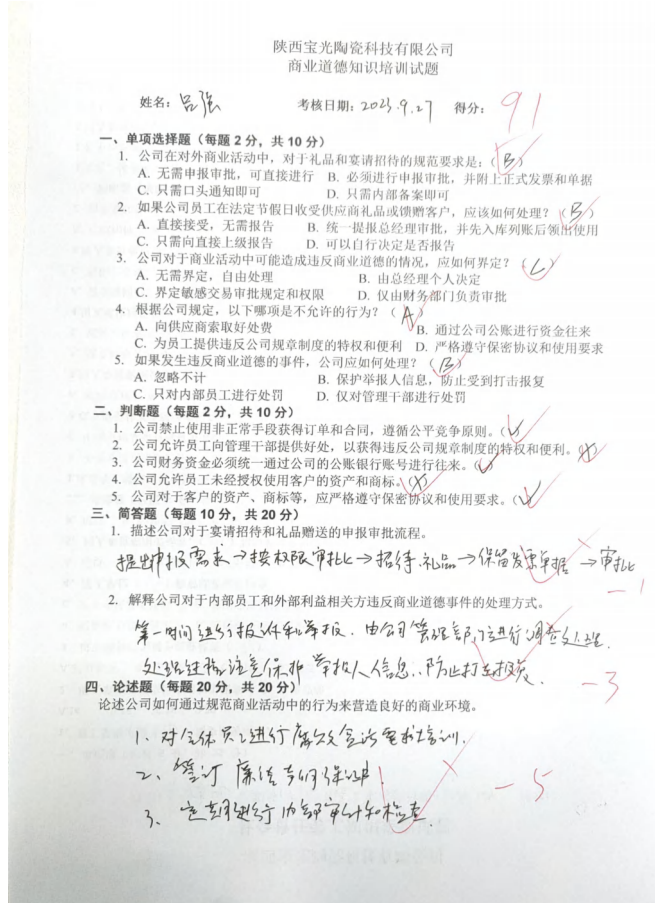 陕西宝光陶瓷科技有限公司
商业道德知识培训试题
姓名：吕强 考核日期：2023.9.27 得分：91
一、单项选择题（每题 2 分，共 10 分）
1. 公司在对外商业活动中，对于礼品和宴请招待的规范要求是：（B）
A. 无需申报审批，可直接进行 B. 必须进行申报审批，并附上正式发票和单据
C. 只需口头通知即可 D. 只需内部备案即可
2. 如果公司员工在法定节假日收受供应商礼品或馈赠客户，应该如何处理？（B）
A. 直接接受，无需报告 B. 统一提报总经理审批，并先入库列账后领出使用
C. 只需向直接上级报告 D. 可以自行决定是否报告
3. 公司对于商业活动中可能造成违反商业道德的情况，应如何界定？（C）
A. 无需界定，自由处理 B. 由总经理个人决定
C. 界定敏感交易审批规定和权限 D. 仅由财务部门负责审批
4. 根据公司规定，以下哪项是不允许的行为？（A）
A. 向供应商索取好处费 B. 通过公司公账进行资金往来
C. 为员工提供违反公司规章制度的特权和便利 D. 严格遵守保密协议和使用要求
5. 如果发生违反商业道德的事件，公司应如何处理？（B）
A. 忽略不计 B. 保护举报人信息，防止受到打击报复
C. 只对内部员工进行处罚 D. 仅对管理干部进行处罚
二、判断题（每题 2 分，共 10 分）
1. 公司禁止使用非正常手段获得订单和合同，遵循公平竞争原则。（√）
2. 公司允许员工向管理干部提供好处，以获得违反公司规章制度的特权和便利。（×）
3. 公司财务资金必须统一通过公司的公账银行账号进行往来。（√）
4. 公司允许员工未经授权使用客户的资产和商标。（×）
5. 公司对于客户的资产、商标等，应严格遵守保密协议和使用要求。（√）
三、简答题（每题 10 分，共 20 分）
1. 描述公司对于宴请招待和礼品赠送的申报审批流程。
提出申报需求→按权限审批→招待.礼品→保留发票单据→审批
-1
2. 解释公司对于内部员工和外部利益相关方违反商业道德事件的处理方式。
第一时间进行投诉和举报．由公司管理部门进行调查处理.
处理过程注意保护举报人信息，防止打击报复、
-3
四、论述题（每题 20 分，共 20 分）
论述公司如何通过规范商业活动中的行为来营造良好的商业环境。
1、对全体员工进行 要求培训.
2、签订廉洁
-5
3、定期进行内部审计和检查.